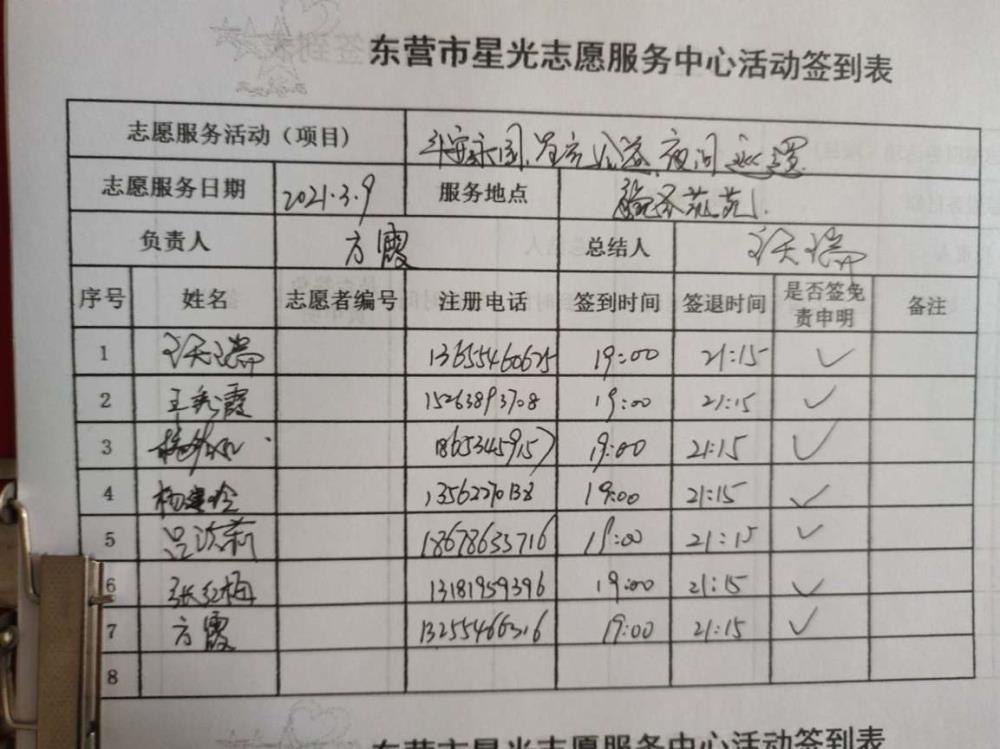 东营市星光志愿服务中心活动签到表
志愿服务活动（项目） 平安家园,星光公益,夜间巡逻
志愿服务日期 2021.3.9 服务地点
负责人 方霞 总结人
序号 姓名 志愿者编号 注册电话 签到时间 签退时间 是否签免责申明 备注
1 13655460625 19:00 21:15 ✓
2 王秀霞 15263893708 19:00 21:15 ✓
3 18653459157 19:00 21:15 ✓
4 杨建玲 13562270138 19:00 21:15 ✓
5 18678633716 19:00 21:15 ✓
6 张红梅 13181959396 19:00 21:15 ✓
7 方霞 13255466316 19:00 21:15 ✓
8
东营市星光志愿服务中心活动签到表